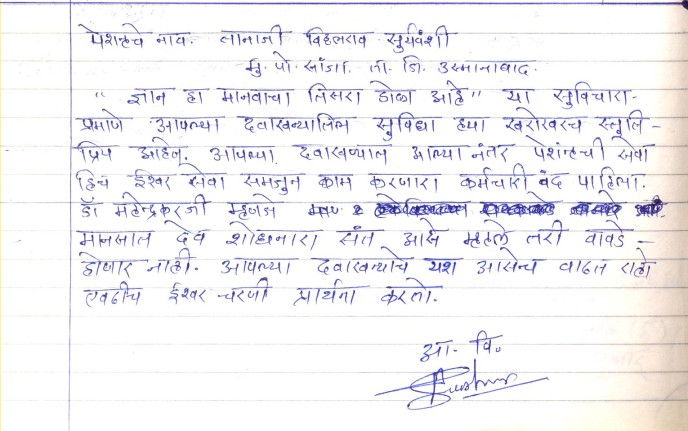 पेशन्टचे नाव. तानाजी विठ्ठलराव सुर्यवंशी
मु. पो. सांजा. ता. जि. उस्मानाबाद.
“ ज्ञान हा मानवाचा तिसरा डोळा आहे” या सुविचारा-
प्रमाणे आपल्या दवाखन्यातिल सुविधा ह्या खरोखरच स्तूति-
प्रिय आहेत. आपल्या दवाखण्यात आल्या नंतर पेशंन्टची सेवा
हिच ईश्वर सेवा समजुन काम करणारा कर्मचारी वृंद पाहिला.
डॉ महेन्द्रकरजी म्हणजे
मानसात देव शोधनारा संत असे म्हटले तरी वावडे -
होणार नाही. आपल्या दवाखन्याचे यश असेच वाढत राहो
एवढीच ईश्वर चरणी प्रार्थना करतो.
आ. वि.